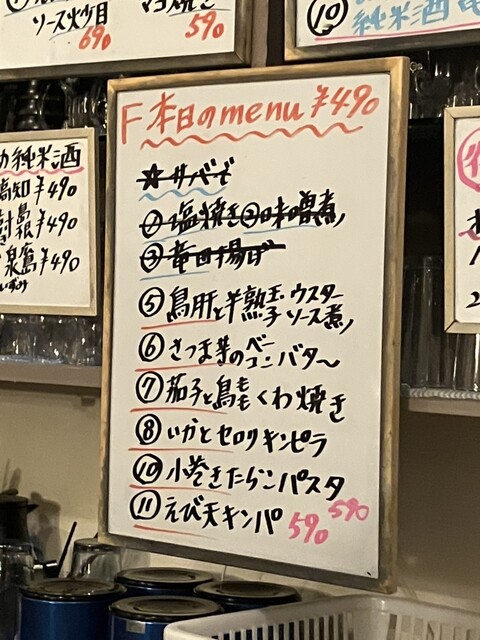 ソース火少目
690
590
⑩
純米酒
純米酒
高知¥490
島根¥490
泉
¥490
F 本日のmenu ¥490
☆サバで
①塩焼き②味噌煮
③竜田揚げ
⑤鳥肝と半熟玉子ウスターソース煮
⑥さつま芋のベーコンバター
⑦茄子と鳥ももくわ焼き
⑧いかとセロリキンピラ
⑩小巻きたらこパスタ 590
⑪えび天キンパ 590